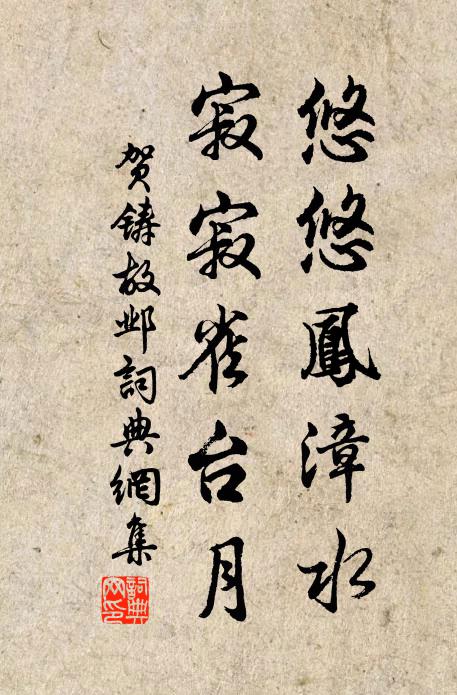 悠悠鳳漳水
寂寂雀台月
贺鑄故邺詞典網集
詞典網印